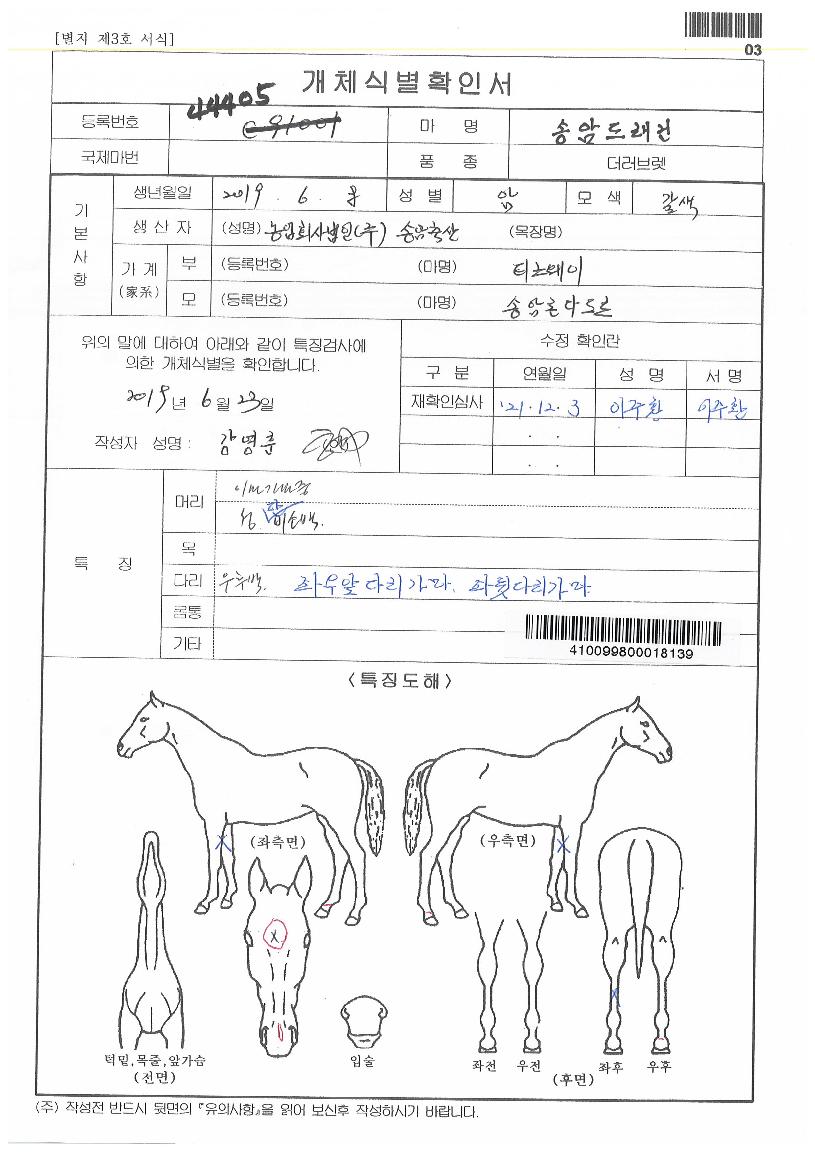 [별지 제3호 서식]
03
개체식별확인서
등록번호 44405 c91001 마 명 송암드래건
국제마번 품 종 더러브렛
기본사항
생년월일 2019. 6. 성 별 암 모 색 갈색
생 산 자 (성명) 농업회사법인(주) 송암축산 (목장명)
가계 (家系) 부 (등록번호) (마명) 티즈웨이
모 (등록번호) (마명)
위의 말에 대하여 아래와 같이 특징검사에
의한 개체식별을 확인합니다.
2019년 6월 23일
작성자 성명 :
수정 확인란
구 분 연월일 성 명 서 명
재확인심사 '21.12.3 이주환 이주환
. .
. .
특 징
머리
목
다리 우후백. 좌우앞다리가마. 좌뒷다리가마
몸통
기타
410099800018139
<특징도해>
(좌측면) (우측면)
턱밑,목줄,앞가슴
(전면)
입술
좌전 우전 좌후 우후
(후면)
(주) 작성전 반드시 뒷면의 『유의사항』을 읽어 보신후 작성하시기 바랍니다.